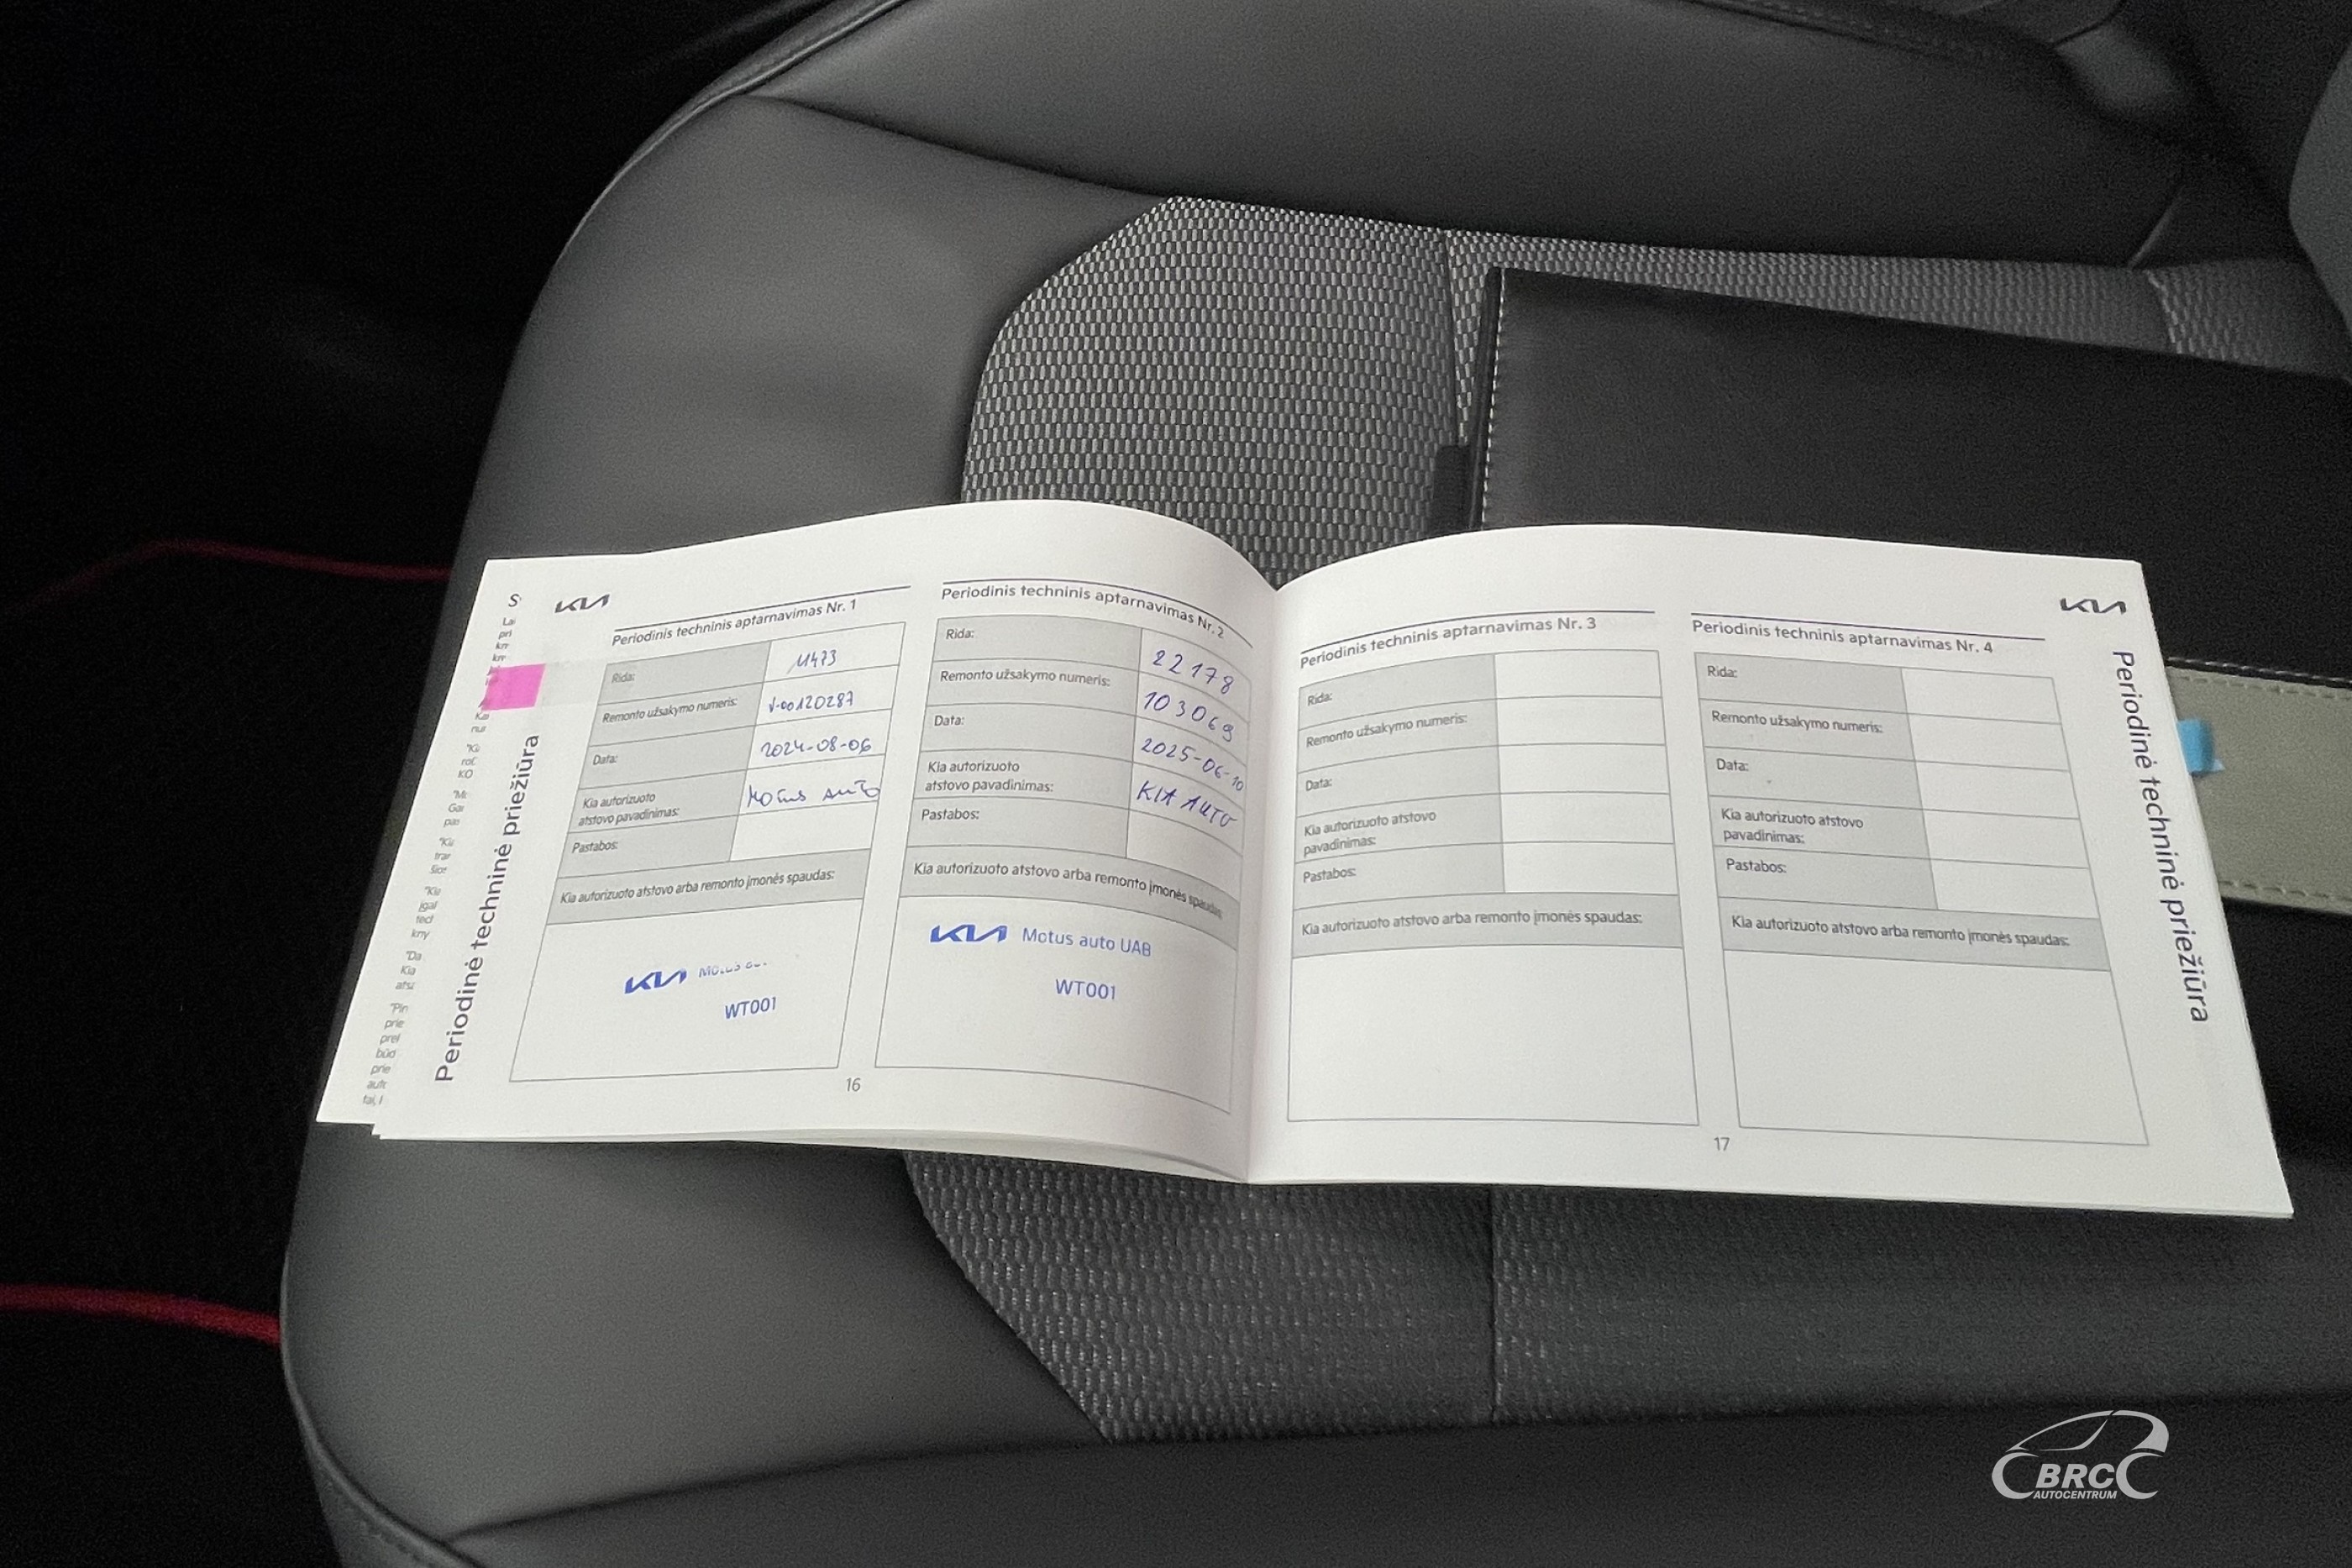 KIA
Periodinė techninė priežiūra
Periodinis techninis aptarnavimas Nr. 1
Rida: 11473
Remonto užsakymo numeris: V-00120287
Data: 2024-08-06
Kia autorizuoto
atstovo pavadinimas: Motus auto
Pastabos:
Kia autorizuoto atstovo arba remonto įmonės spaudas:
KIA Motus
WT001
Periodinis techninis aptarnavimas Nr. 2
Rida: 22178
Remonto užsakymo numeris: 103069
Data: 2025-06-10
Kia autorizuoto
atstovo pavadinimas: KIA AUTO
Pastabos:
Kia autorizuoto atstovo arba remonto įmonės spaudas:
KIA Motus auto UAB
WT001
16
Periodinis techninis aptarnavimas Nr. 3
Rida:
Remonto užsakymo numeris:
Data:
Kia autorizuoto atstovo
pavadinimas:
Pastabos:
Kia autorizuoto atstovo arba remonto įmonės spaudas:
Periodinis techninis aptarnavimas Nr. 4
Rida:
Remonto užsakymo numeris:
Data:
Kia autorizuoto atstovo
pavadinimas:
Pastabos:
Kia autorizuoto atstovo arba remonto įmonės spaudas:
17
KIA
Periodinė techninė priežiūra
BRC
AUTOCENTRUM